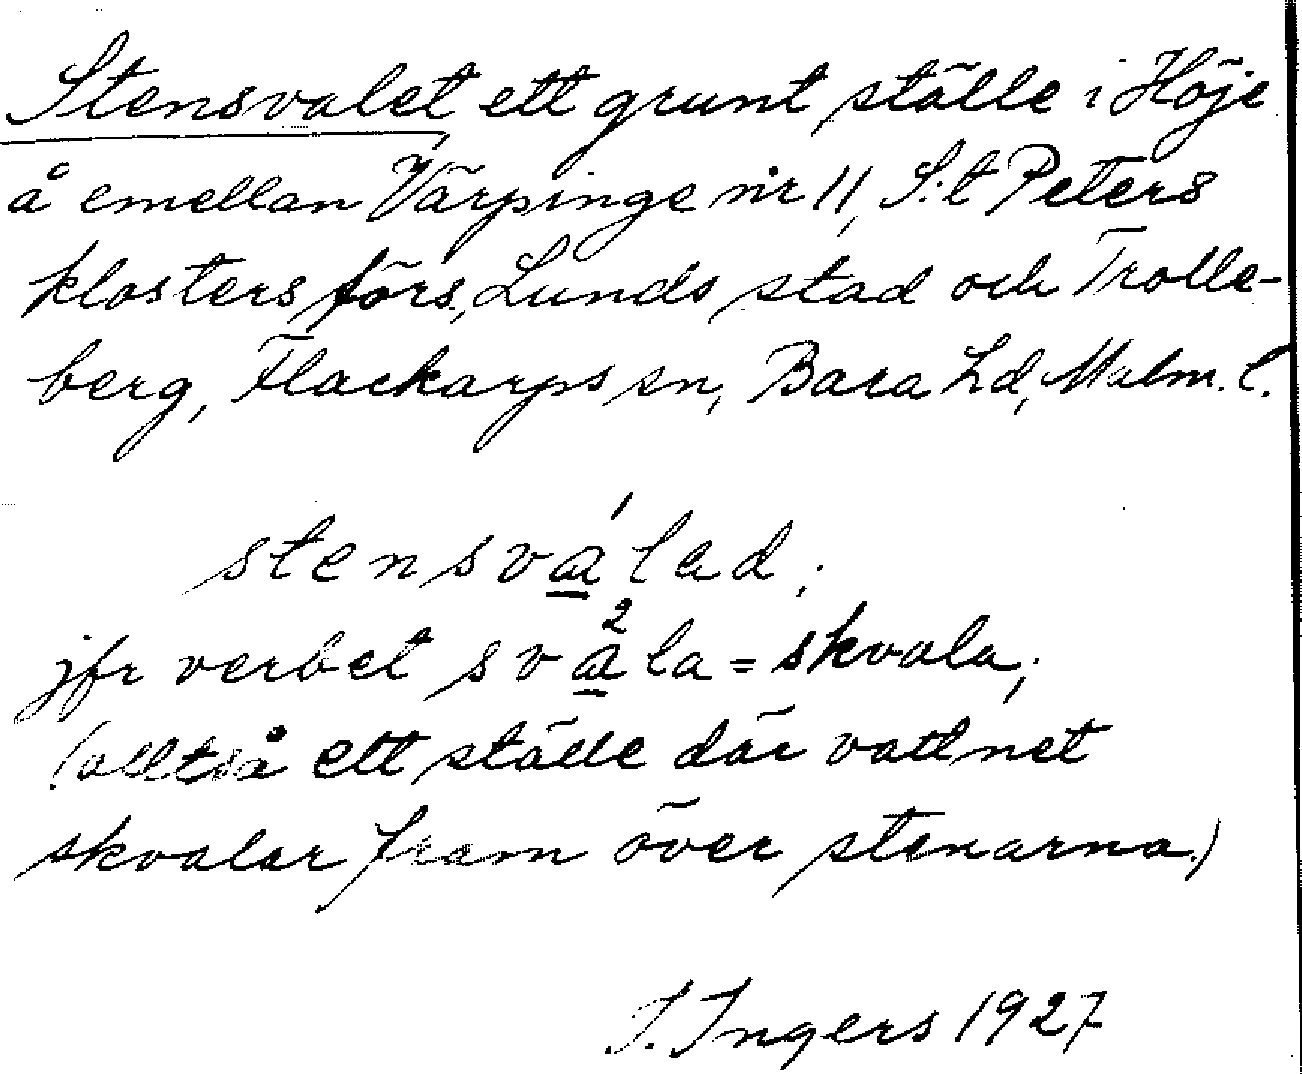 Stensvalet, ett grunt ställe i Höje
å emellan Värpinge nr 11, S:t Peters
klosters förs, Lunds stad och Trolle-
berg, Flackarps sn, Bara hd, Malm. l.
stensvál̲ad;
jfr verbet svä²la = skvala;
(alltså ett ställe där vattnet
skvalar fram över stenarna.)
I. Ingers 1927